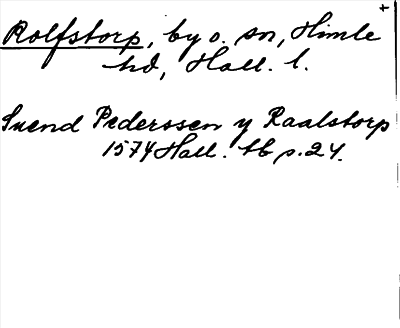 +
Rolfstorp, by o. sn, Himle
hd, Hall. l.
Svend Pederssen y Raalstorp
1574 Hall. tb p. 24.